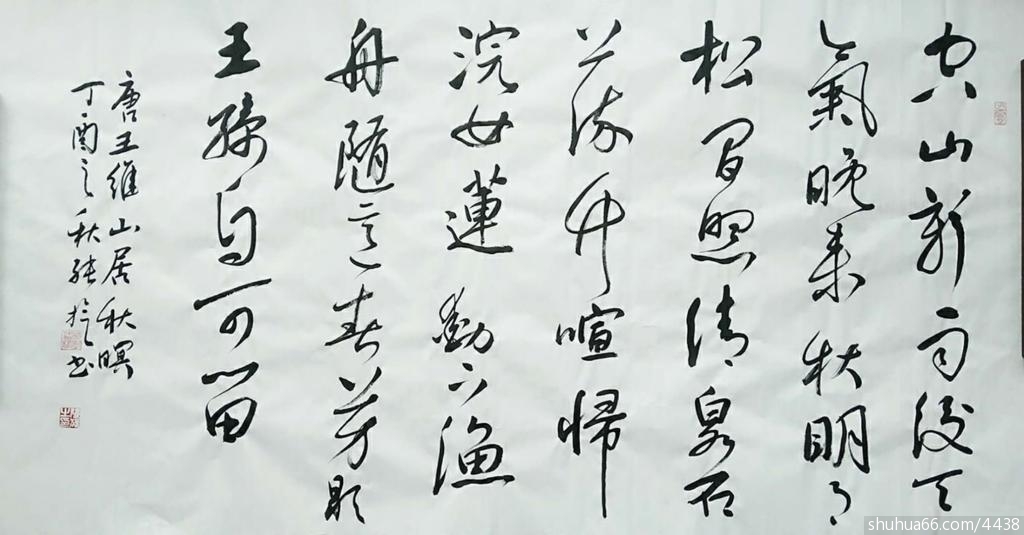 空山新雨後天
氣晚来秋明月
松間照清泉石
上流竹喧歸
浣女蓮動下漁
舟隨意春芳歇
王孫自可留
唐王維山居秋暝
丁酉之秋張書
shuhua66.com/4438